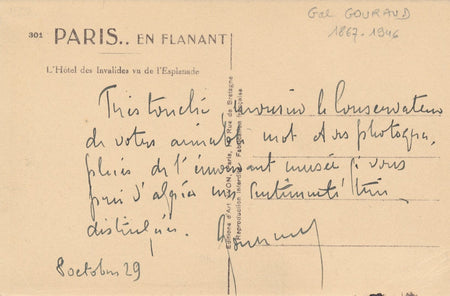 Gal GOURAUD
1867-1946
301 PARIS.. EN FLANANT
L'Hôtel des Invalides vu de l'Esplanade
Très touché monsieur le Conservateur
de votre aimable mot et des photogra,
phies de l'émouvant musée je vous
prie d'agréer mes sentiments très
distingués. Gouraud
8 octobre 29
Editions d'Art YVON, Paris, Rue de Bretagne
Reproduction interdite Fabrication française